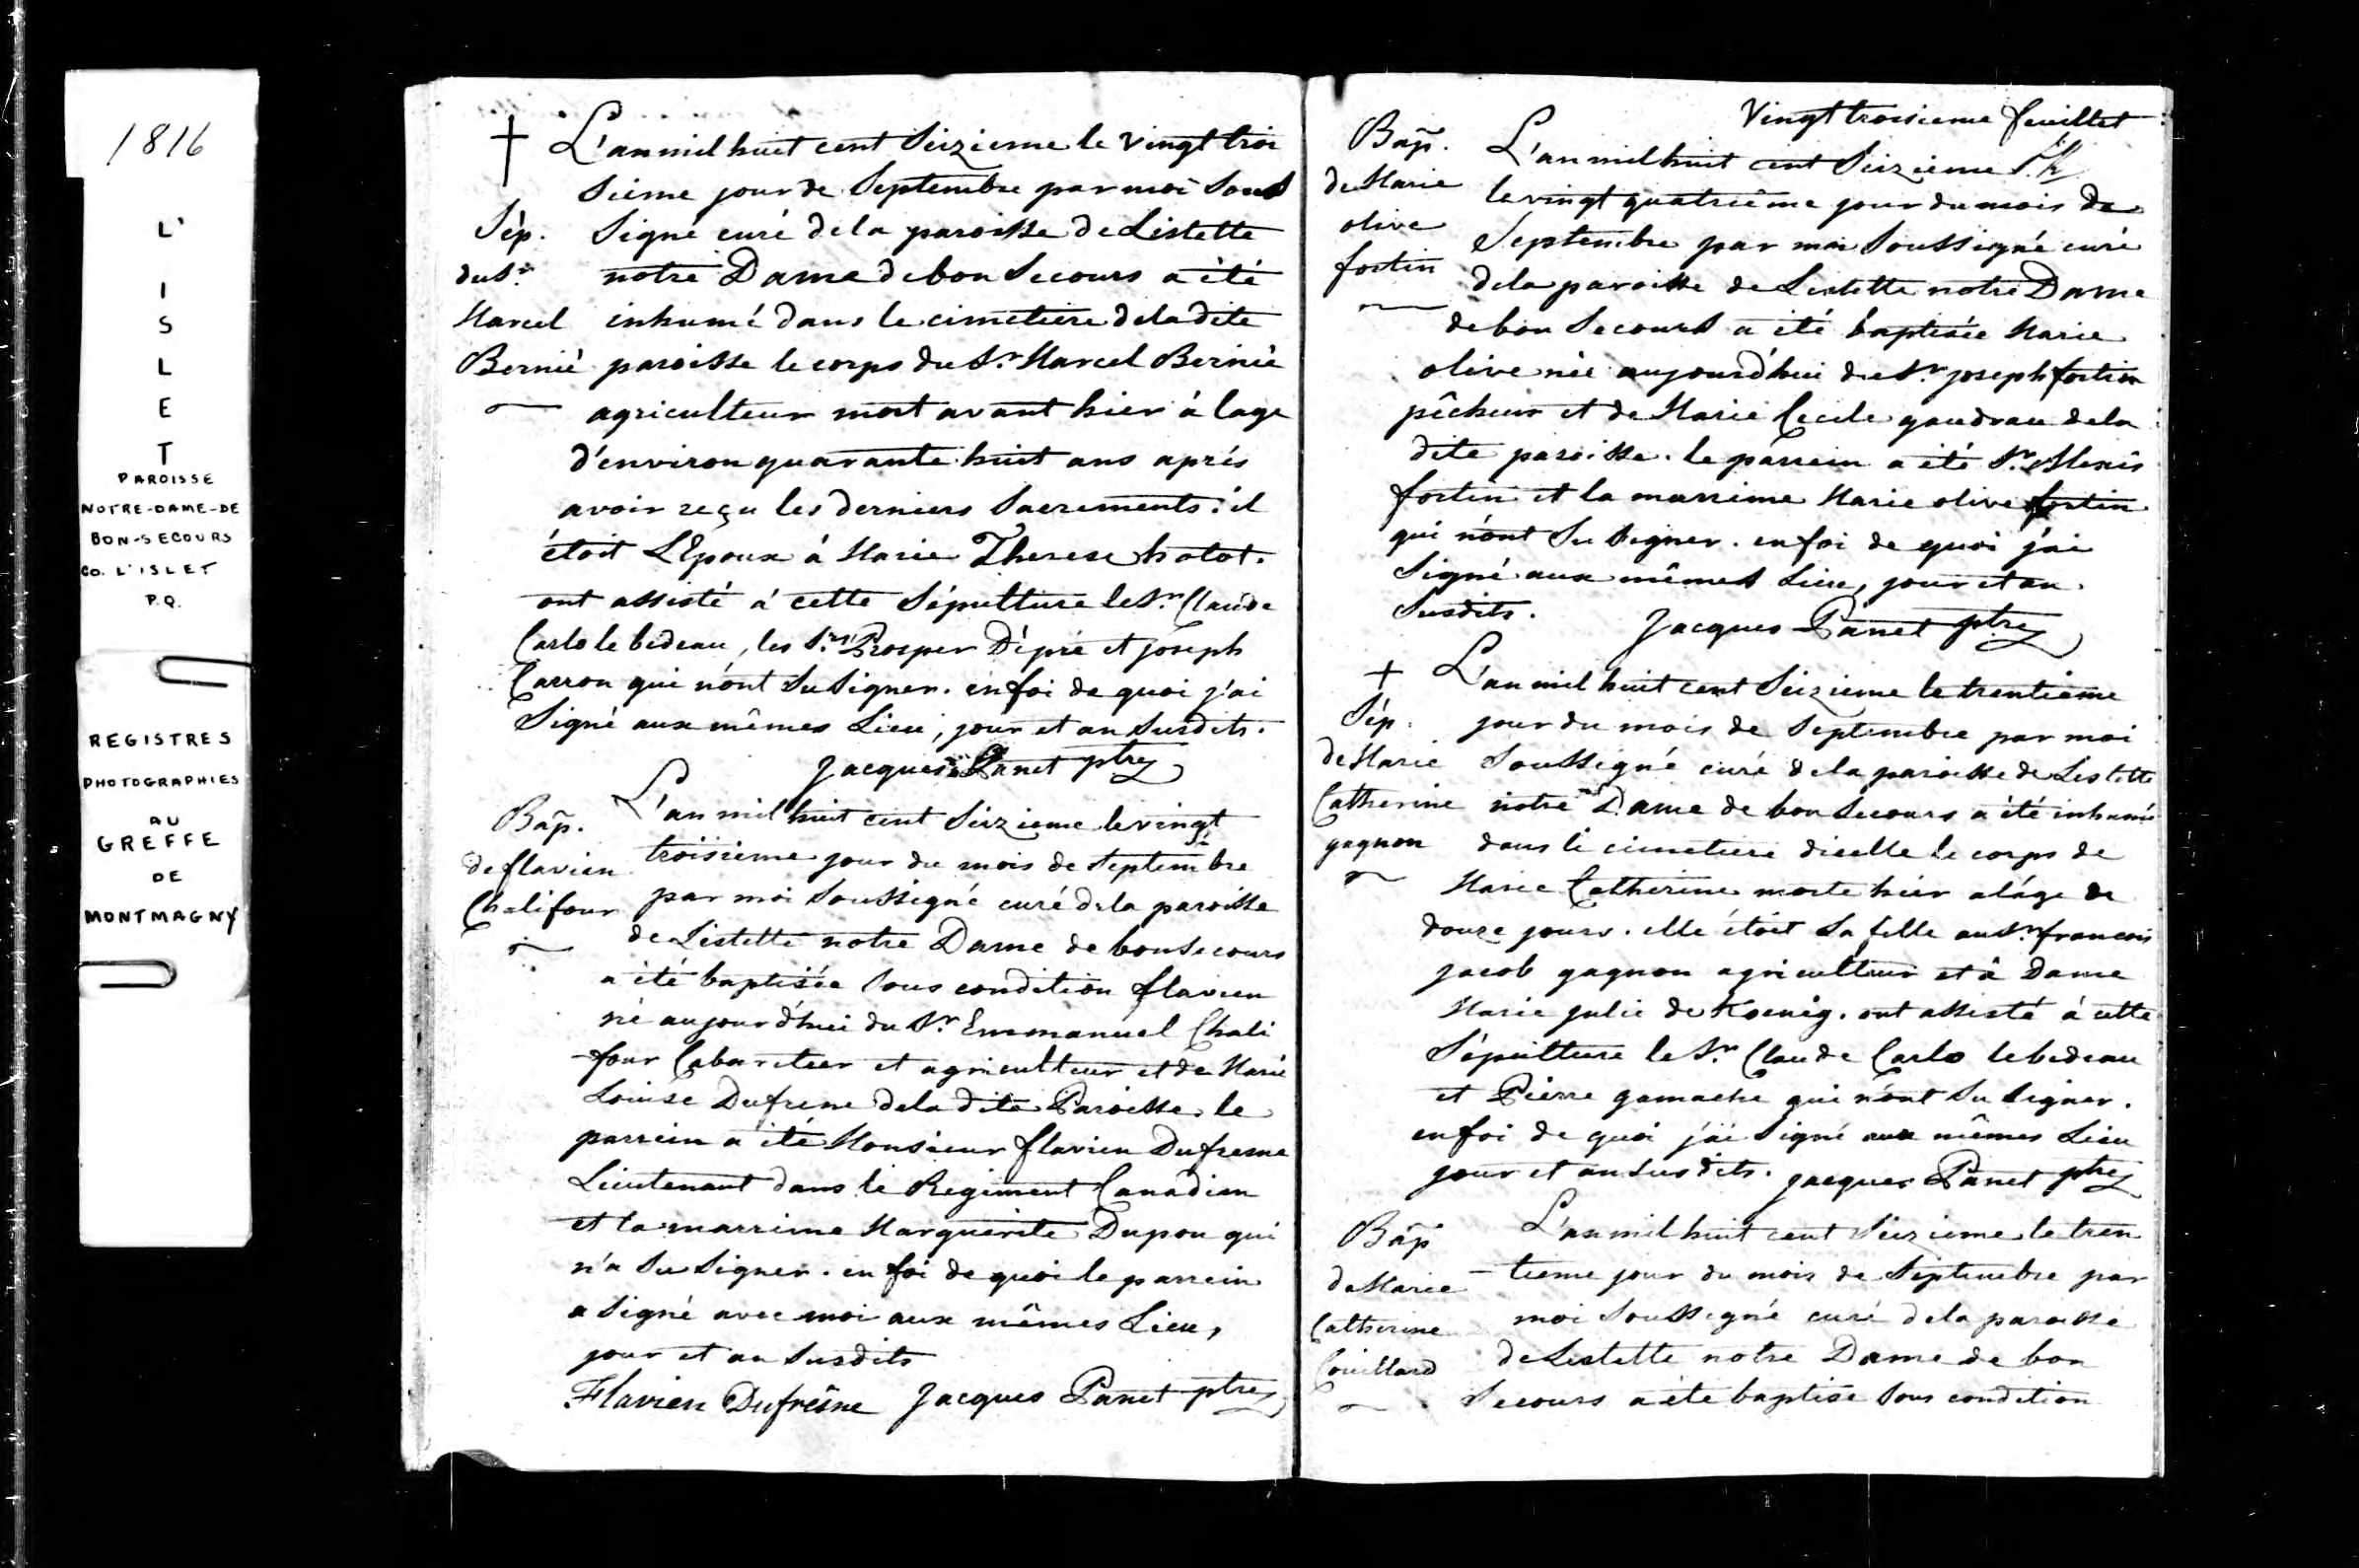 1816
L'
I
S
L
E
T
PAROISSE
NOTRE-DAME-DE
BON-SECOURS
CO. L'ISLET
P.Q.
REGISTRES
PHOTOGRAPHIES
AU
GREFFE
DE
MONTMAGNY
Sép.
du Sr.
Marcel
Bernié
L'an mil huit cent Seizieme le vingt troi
Sieme jour de Septembre par moi Sous
Signé curé de la paroisse de Listette
notre Dame de bon Secours a été
inhumé dans le cimetiere de la dite
paroisse le corps du Sr. Marcel Bernié
agriculteur mort avant hier à lage
d'environ quarante huit ans après
avoir reçu les derniers Sacrements: il
étoit L'Epoux à Marie Therese
ont assisté à cette Sépulture le Sr. Claude
Carlo le bedeau, les Srs. Prosper Dépré et joseph
Carron qui n'ont Su Signer. en foi de quoi j'ai
Signé aux mêmes Lieu, jour et an Susdits.
Jacques Panet ptre
Bap.
de flavien
Chalifour
L'an mil huit cent Seizieme le vingt
troisieme jour du mois de Septembre
par moi Soussigné curé de la paroisse
de Listette notre Dame de bon Secours
a été baptisée Sous condition flavien
né aujourd'hui du Sr. Emmanuel Chali
four Cabaretier et agriculteur et de Marie
Louise Dufrene de la dite Paroisse. le
parrein a été Monsieur flavien Dufresne
Lieutenant dans le Regiment Canadien
et la marreine Marguerite Dupon qui
n'a Su Signer. en foi de quoi le parrein
a Signé avec moi aux mêmes Lieu,
jour et an Susdits
Flavien Dufrêsne Jacques Panet ptre
Vingt troisieme feuillet
Bap.
de Marie
olive
fortin
L'an mil huit cent Seizieme
le vingt quatrième jour du mois de
Septembre par moi Soussigné curé
de la paroisse de Listette notre Dame
de bon Secours a été baptisée Marie
olive née aujourd'hui du Sr. joseph fortin
pêcheur et de Marie Cecile gaudrau de la
dite paroisse. le parrein a été Sr. Alexis
fortin et la marreine Marie olive fortin
qui n'ont Su Signer. en foi de quoi j'ai
Signé aux mêmes Lieu, jour et an
Susdits. Jacques Panet ptre
Sép.
de Marie
Catherine
gagnon
L'an mil huit cent Seizieme le trentième
jour du mois de Septembre par moi
Soussigné curé de la paroisse de Listette
notre Dame de bon Secours a été inhumé
dans le cimetiere dicelle le corps de
Marie Catherine morte hier a lâge de
douze jours. elle étoit La fille au Sr. francois
jacob gagnon agriculteur et à Dame
Marie julie de Koenig. ont assisté à cette
Sépulture le Sr. Claude Carlo le bedeau
et Pierre gamache qui n'ont Su Signer.
en foi de quoi j'ai Signé aux mêmes Lieu
jour et an susdits. Jacques Panet ptre
Bap
de Marie
Catherine
Couillard
L'an mil huit cent Seizieme le tren
tieme jour du mois de Septembre par
moi Soussigné curé de la paroisse
de Listette notre Dame de bon
Secours a été baptisé Sous condition